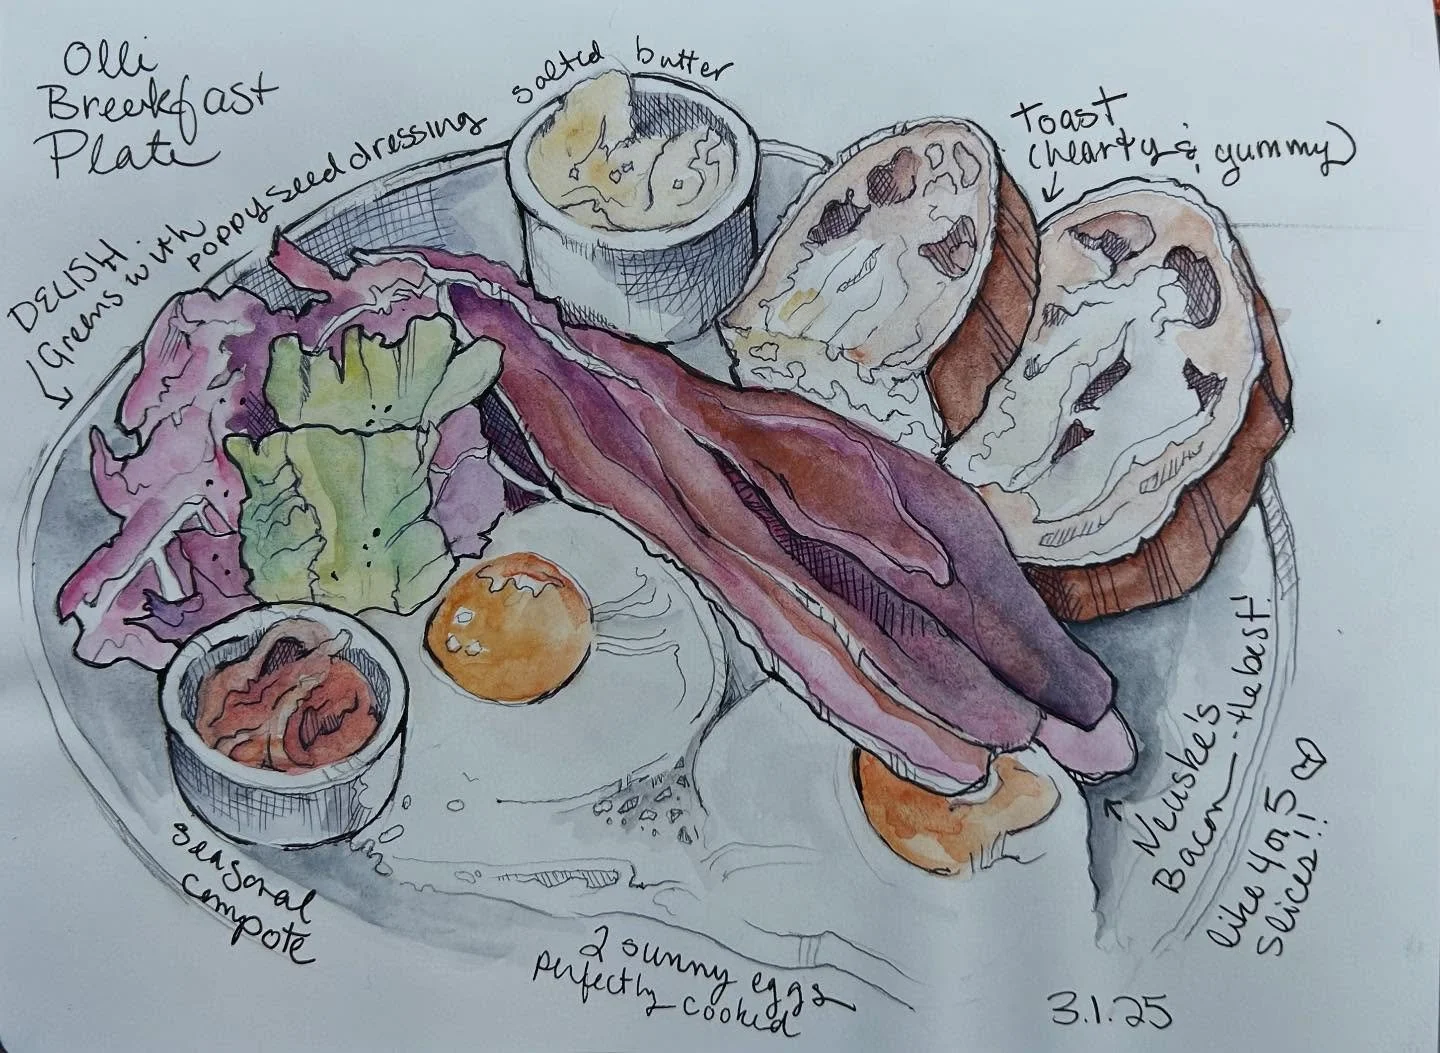 Olli
Breakfast
Plate
salted butter
toast
(hearty & yummy)
DELISH
Greens with
poppyseed dressing
Neuske's
Bacon - the best!
like 4 or 5
slices!!
seasonal
compote
2 sunny eggs
perfectly cooked
3.1.25